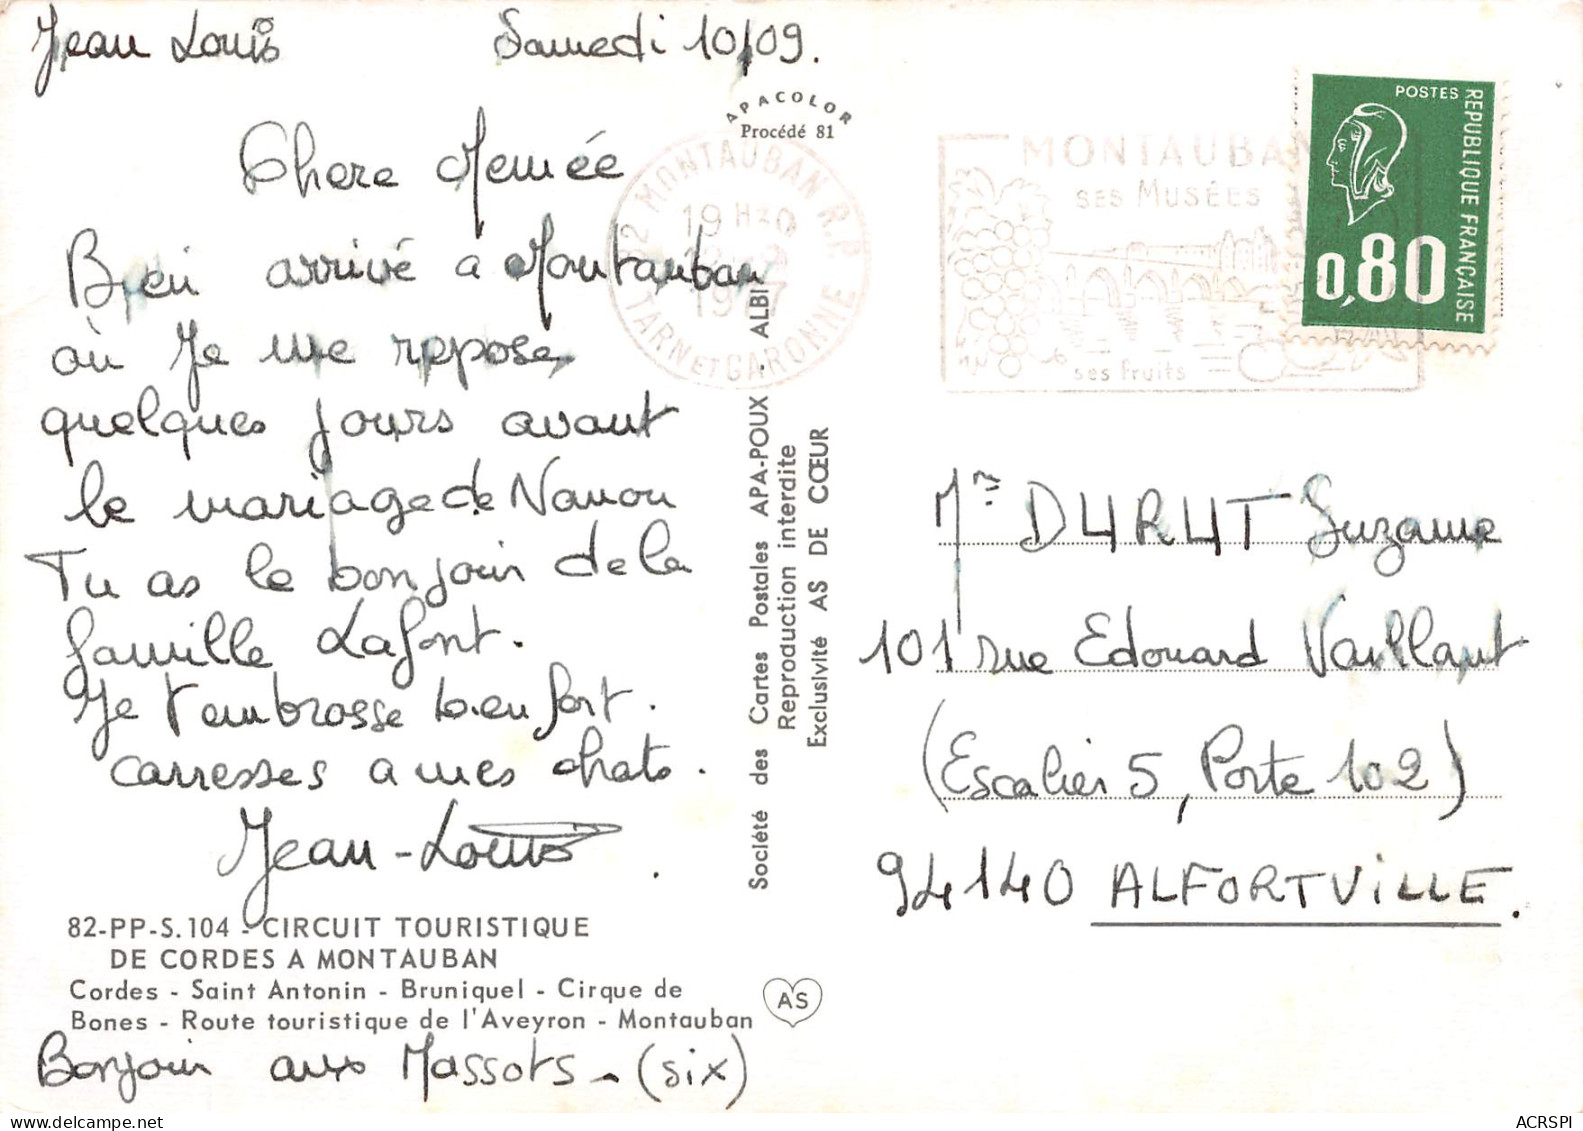 Jean Louis Samedi 10/09.
Chere Memée
Bien arrivé a Montauban
où Je me repose
quelques jours avant
le mariage de Nanou
Tu as le bonjour de la
famille Lafont.
Je t'embrasse bien fort.
carresses a mes chats.
Jean-Louis
82-PP-S.104 - CIRCUIT TOURISTIQUE
DE CORDES A MONTAUBAN
Cordes - Saint Antonin - Bruniquel - Cirque de
Bones - Route touristique de l'Aveyron - Montauban
Bonjour aux Massots - (six)
APACOLOR
Procédé 81
Société des Cartes Postales APA-POUX - ALBI
Reproduction interdite
Exclusivité AS DE CŒUR
AS
82 MONTAUBAN R.P.
19 H
1977
TARN ET GARONNE
MONTAUBAN
SES MUSÉES
ses fruits
POSTES
REPUBLIQUE FRANÇAISE
0,80
Mme DURUT Suzanne
101 rue Edouard Vaillant
(Escalier 5, Porte 102)
94140 ALFORTVILLE.
ACRSPI